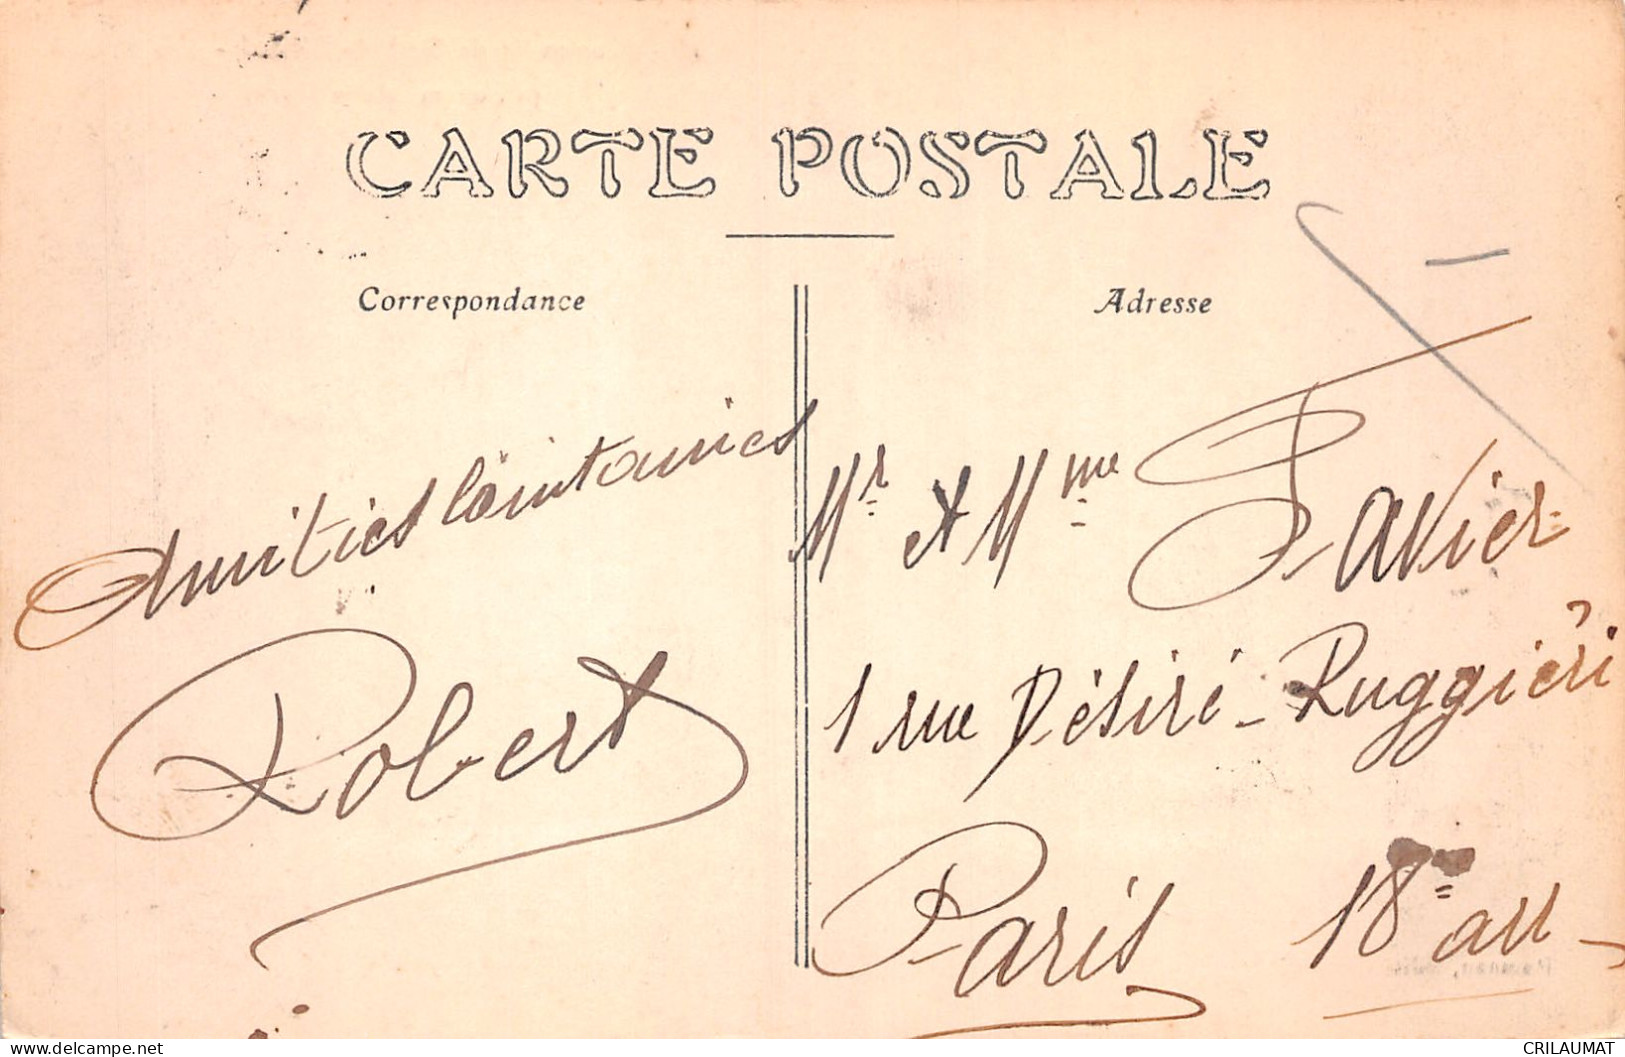 CARTE POSTALE
Correspondance
Adresse
Amitiés lointaines
Robert
Mr et Mme Pavier
1 rue Désiré-Ruggiéri
Paris 18= arr
delcampe.net
CRILAUMAT